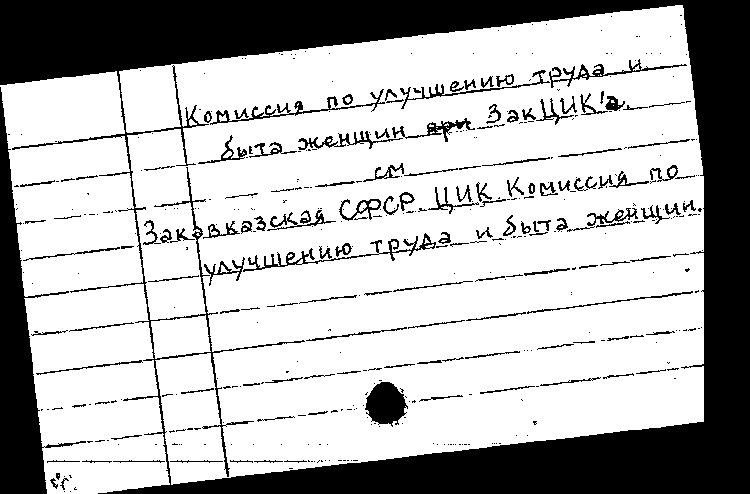 Комиссия по улучшению труда и
быта женщин при ЗакЦИК'а.
см
Закавказская СФСР. ЦИК Комиссия по
улучшению труда и быта женщин.